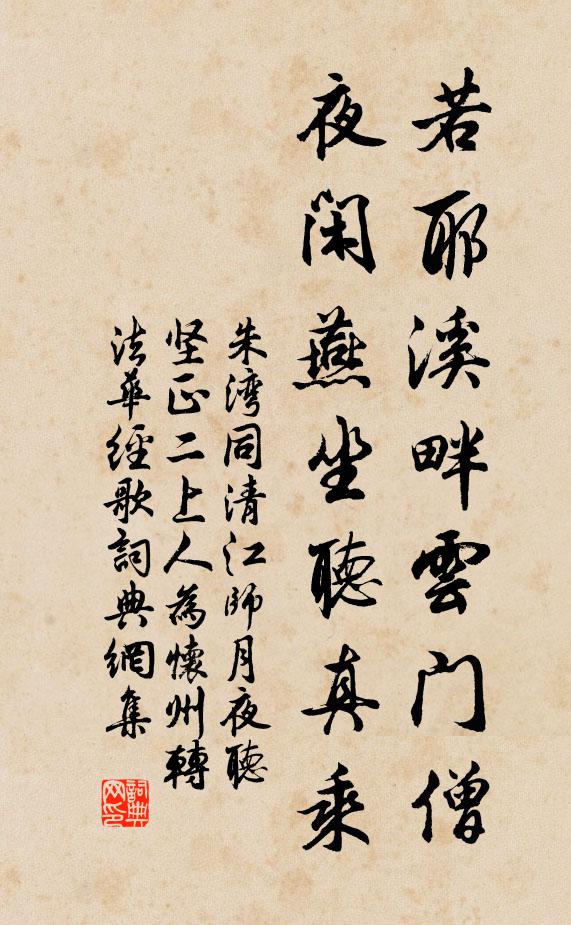 若耶溪畔雲门僧
夜闲燕坐聽真乘
朱湾同清江师月夜聽
坚正二上人為懷州轉
法華經歌詞典網集
詞典网印